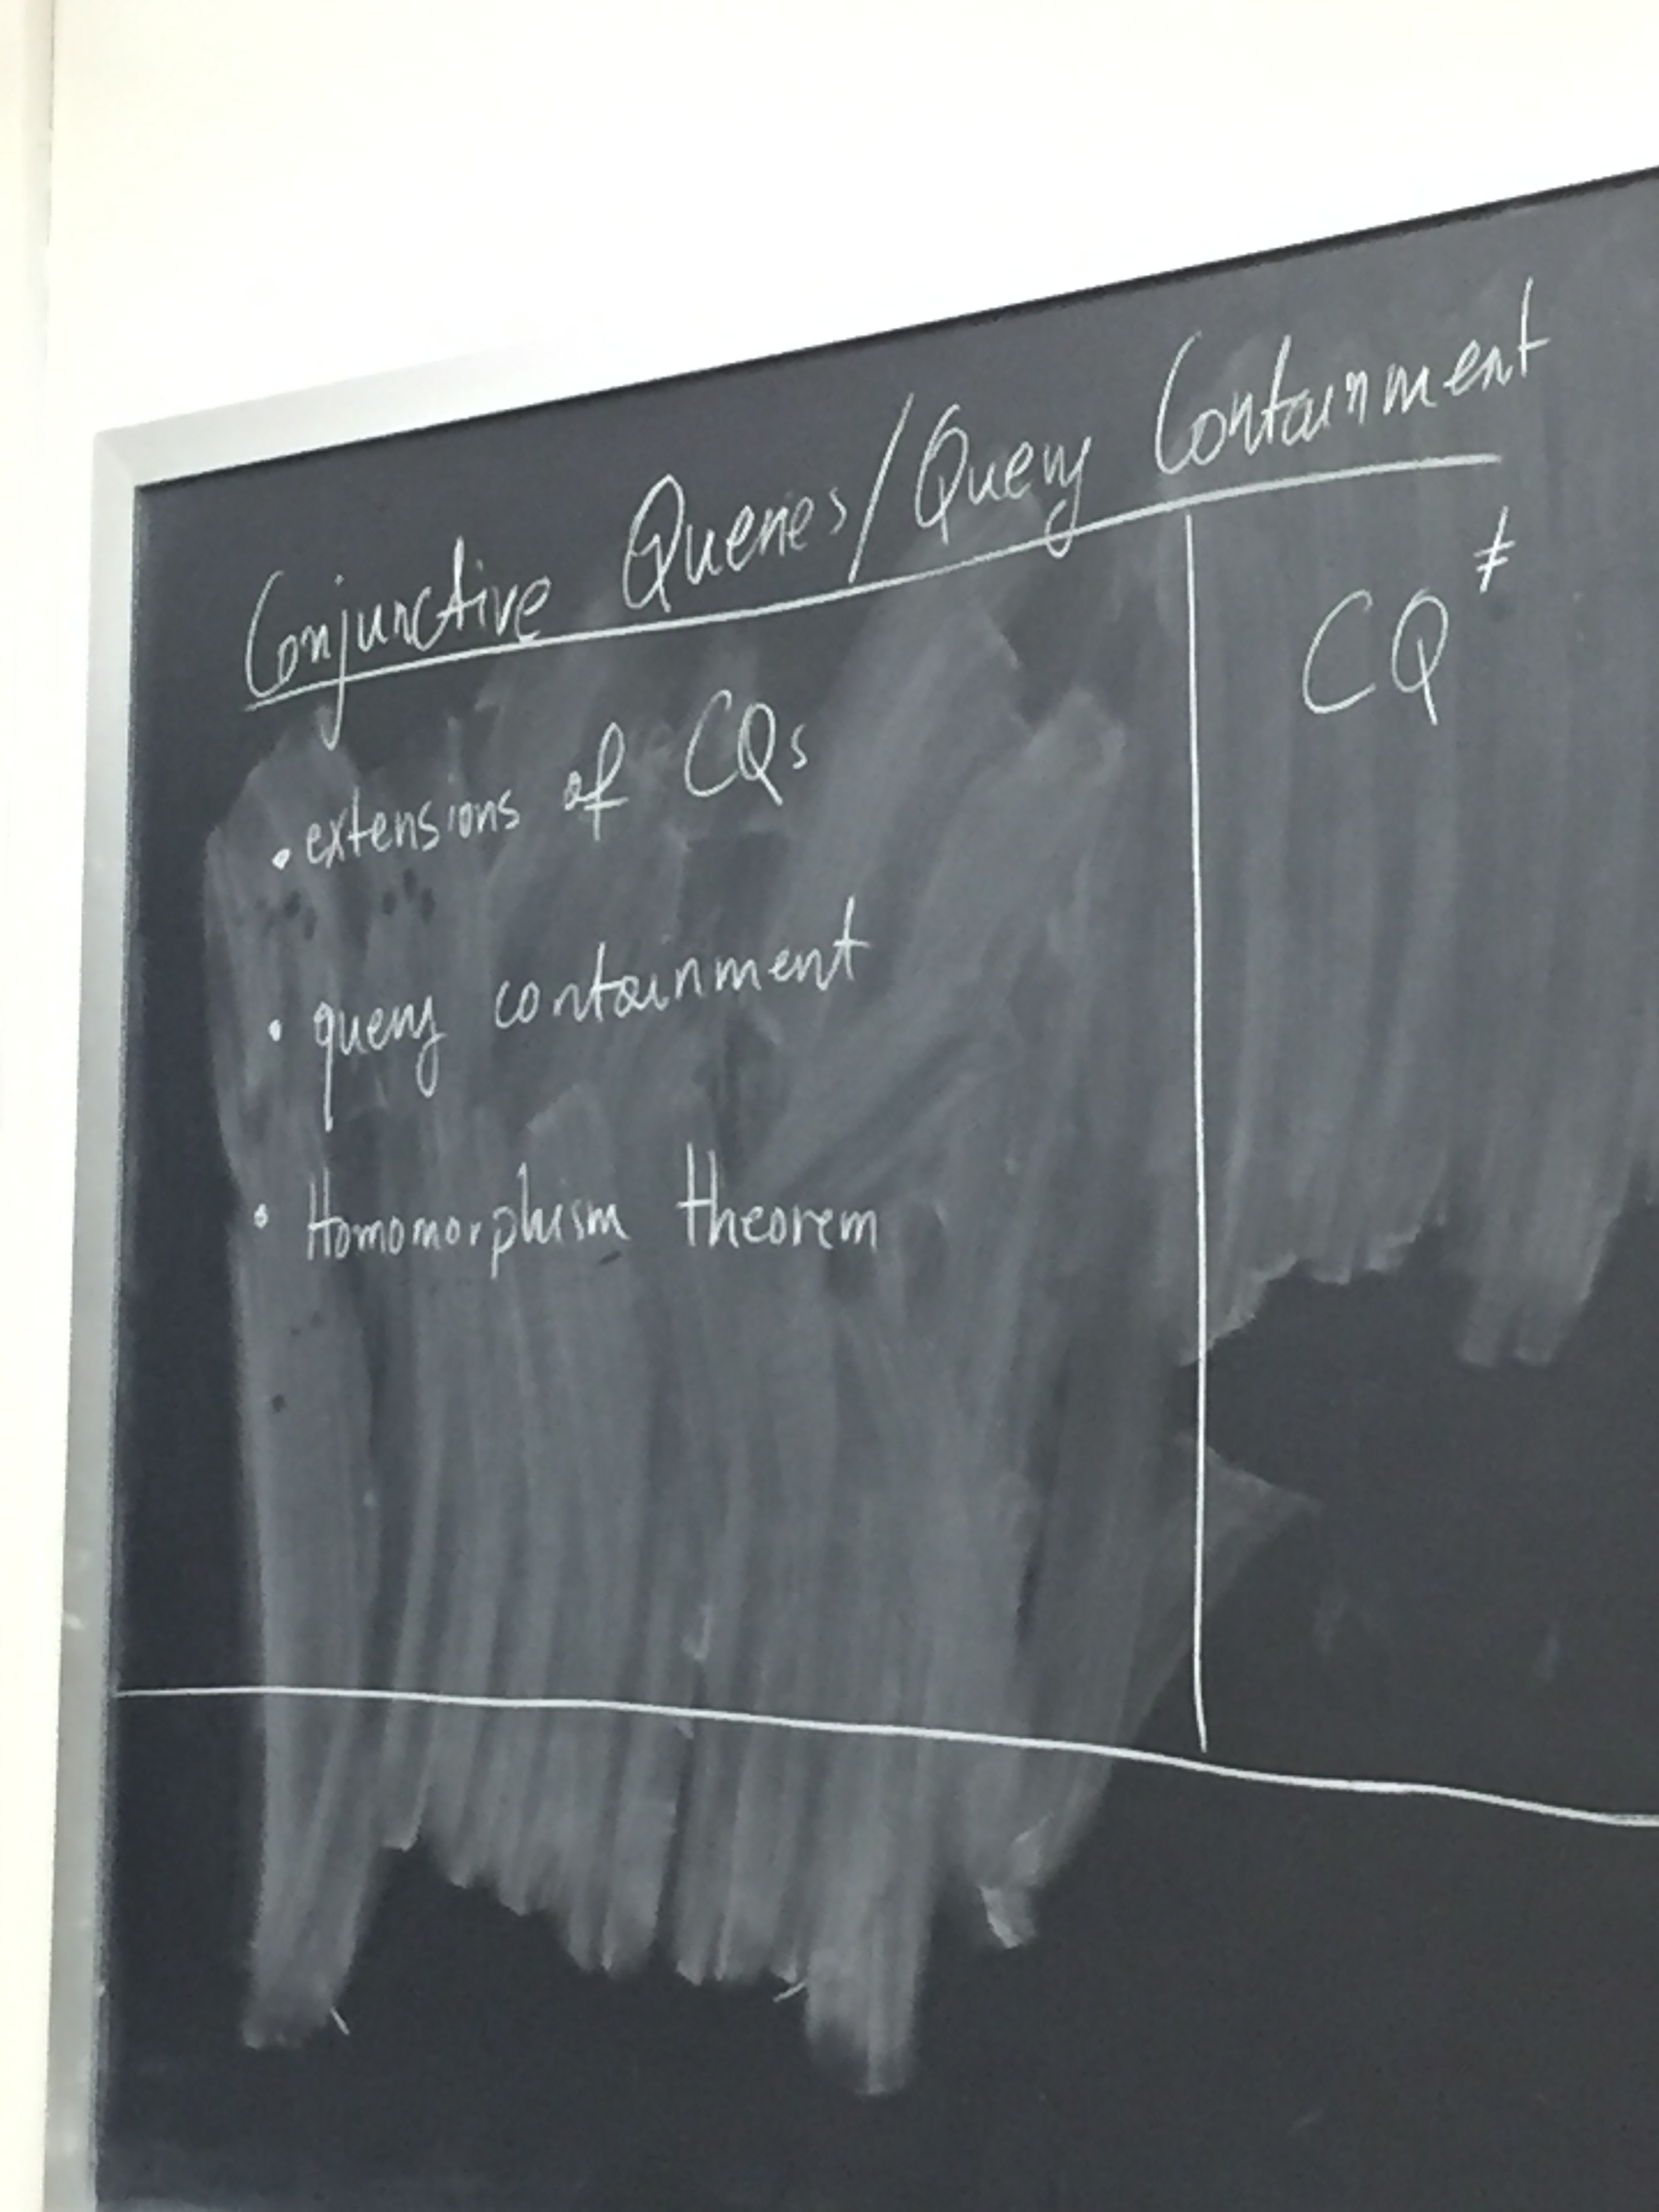 Conjunctive Queries/Query Containment
• extensions of CQs
• query containment
• Homomorphism theorem
CQ≠